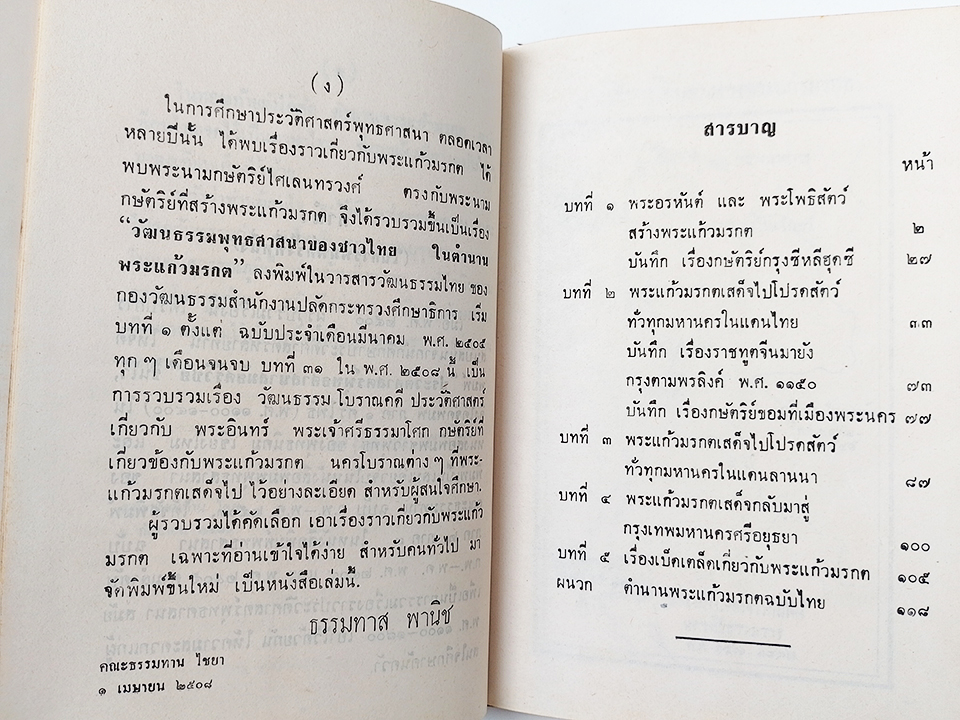 (ง)
ในการศึกษาประวัติศาสตร์พุทธศาสนา ตลอดเวลา
หลายปีนั้น ได้พบเรื่องราวเกี่ยวกับพระแก้วมรกต ได้
พบพระนามกษัตริย์ไศเลนทรวงศ์ ตรงกับพระนาม
กษัตริย์ที่สร้างพระแก้วมรกต จึงได้รวบรวมขึ้นเป็นเรื่อง
“วัฒนธรรมพุทธศาสนาของชาวไทย ในตำนาน
พระแก้วมรกต” ลงพิมพ์ในวารสารวัฒนธรรมไทย ของ
กองวัฒนธรรมสำนักงานปลัดกระทรวงศึกษาธิการ เริ่ม
บทที่ ๑ ตั้งแต่ ฉบับประจำเดือนมีนาคม พ.ศ. ๒๕๐๕
ทุก ๆ เดือนจนจบ บทที่ ๓๑ ใน พ.ศ. ๒๕๐๘ นี้ เป็น
การรวบรวมเรื่อง วัฒนธรรม โบราณคดี ประวัติศาสตร์
เกี่ยวกับ พระอินทร์ พระเจ้าศรีธรรมาโศก กษัตริย์ที่
เกี่ยวข้องกับพระแก้วมรกต นครโบราณต่าง ๆ ที่พระ-
แก้วมรกตเสด็จไป ไว้อย่างละเอียด สำหรับผู้สนใจศึกษา.
ผู้รวบรวมได้คัดเลือก เอาเรื่องราวเกี่ยวกับพระแก้ว
มรกต เฉพาะที่อ่านเข้าใจได้ง่าย สำหรับคนทั่วไป มา
จัดพิมพ์ขึ้นใหม่ เป็นหนังสือเล่มนี้.
ธรรมทาส พานิช
คณะธรรมทาน ไชยา
๑ เมษายน ๒๕๐๘
สารบาญ
หน้า
บทที่ ๑ พระอรหันต์ และ พระโพธิสัตว์
สร้างพระแก้วมรกต ๒
บันทึก เรื่องกษัตริย์กรุงซีหลีฮุดซี ๒๗
บทที่ ๒ พระแก้วมรกตเสด็จไปโปรดสัตว์
ทั่วทุกมหานครในแดนไทย ๓๓
บันทึก เรื่องราชทูตจีนมายัง
กรุงตามพรลิงค์ พ.ศ. ๑๑๕๐ ๗๓
บันทึก เรื่องกษัตริย์ขอมที่เมืองพระนคร ๗๗
บทที่ ๓ พระแก้วมรกตเสด็จไปโปรดสัตว์
ทั่วทุกมหานครในแดนลานนา ๘๗
บทที่ ๔ พระแก้วมรกตเสด็จกลับมาสู่
กรุงเทพมหานครศรีอยุธยา ๑๐๐
บทที่ ๕ เรื่องเบ็ดเตล็ดเกี่ยวกับพระแก้วมรกต ๑๐๕
ผนวก ตำนานพระแก้วมรกตฉบับไทย ๑๑๘